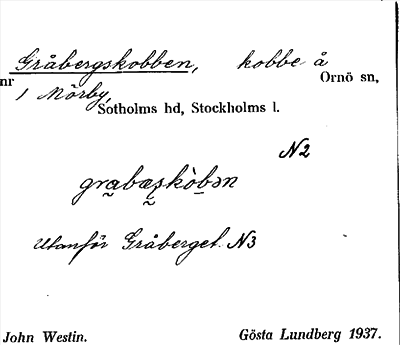 Gråbergskobben, kobbe å
nr Ornö sn,
1 Mörby,
Sotholms hd, Stockholms l.
N2
grabæskòbən
Utanför Gråberget. N3
John Westin. Gösta Lundberg 1937.